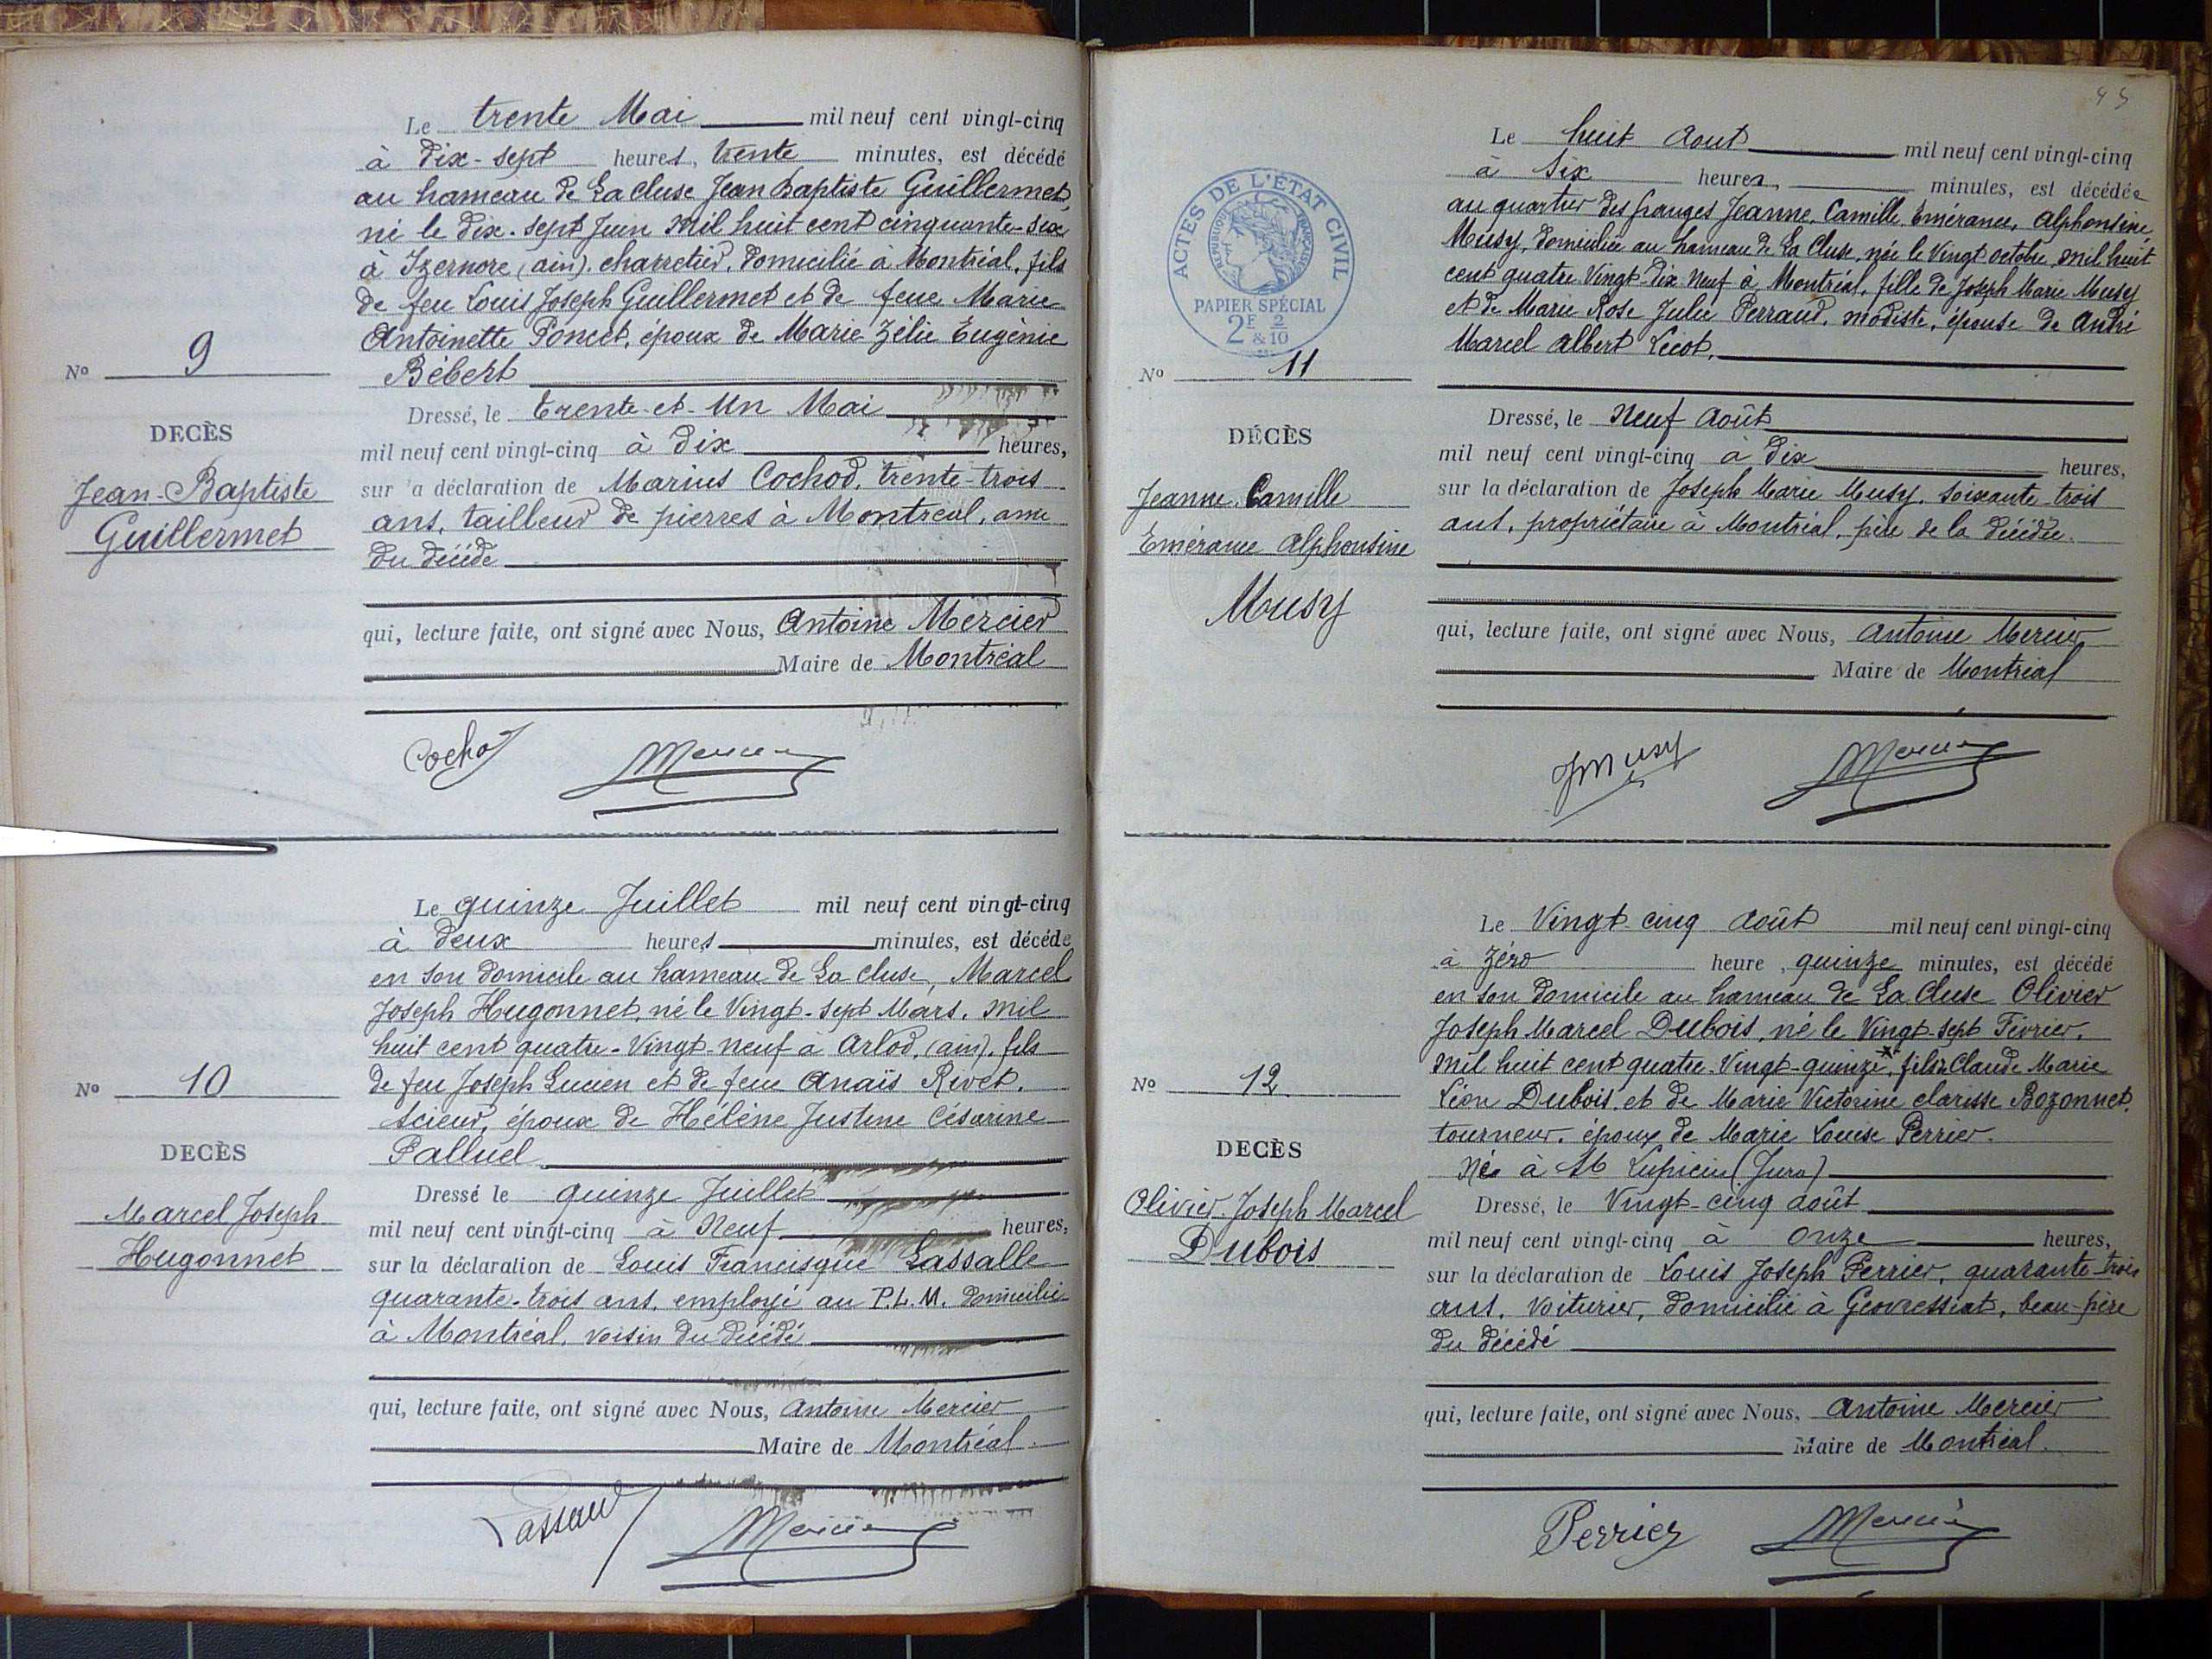 Le trente Mai mil neuf cent vingt-cinq
à dix-sept heures, trente minutes, est décédé
au hameau de La Cluse Jean Baptiste Guillermet,
né le dix-sept Juin mil huit cent cinquante-six
à Izernore (ain), charretier, domicilié à Montréal, fils
de feu Louis Joseph Guillermet et de feue Marie
Antoinette Poncet, époux de Marie Zélie Eugénie
Bébert
Nº 9
DECÈS
Jean-Baptiste
Guillermet
Dressé, le trente-et-un Mai
mil neuf cent vingt-cinq à dix heures,
sur la déclaration de Marius Cochod, trente-trois
ans, tailleur de pierres à Montréal, ami
du décédé
qui, lecture faite, ont signé avec Nous, Antoine Mercier
Maire de Montréal
Cochod Mercier
Le quinze Juillet mil neuf cent vingt-cinq
à deux heures minutes, est décédé
en son domicile au hameau de La Cluse, Marcel
Joseph Hugonnet, né le Vingt-sept Mars, mil
huit cent quatre-Vingt-neuf à Arlod, (ain), fils
de feu Joseph Lucien et de feue Anaïs Rivet,
scieur, époux de Hélène Justine Césarine
Palluel
Nº 10
DECÈS
Marcel Joseph
Hugonnet
Dressé le quinze Juillet
mil neuf cent vingt-cinq à Neuf heures,
sur la déclaration de Louis Francisque Lassalle
quarante-trois ans, employé au P.L.M. domicilié
à Montréal, voisin du décédé
qui, lecture faite, ont signé avec Nous, Antoine Mercier
Maire de Montréal
Mercier
45
ACTES DE L'ÉTAT CIVIL
RÉPUBLIQUE FRANÇAISE
PAPIER SPÉCIAL
2F & 2/10
Le huit Aout mil neuf cent vingt-cinq
à six heures, minutes, est décédée
au quartier des granges Jeanne, Camille, Emérance, Alphonsine,
Musy, domiciliée au hameau de La Cluse, née le Vingt octobre, mil huit
cent quatre Vingt-dix Neuf à Montréal, fille de Joseph Marie Musy
et de Marie Rose Julie Perraud, modiste, épouse de André
Marcel Albert Lecot,
Nº 11
DÉCÈS
Jeanne Camille
Emérance Alphonsine
Musy
Dressé, le Neuf Août
mil neuf cent vingt-cinq à dix heures,
sur la déclaration de Joseph Marie Musy, soixante trois
ans, propriétaire à Montréal, père de la décédée
qui, lecture faite, ont signé avec Nous, Antoine Mercier
Maire de Montréal
JMusy Mercier
Le Vingt-cinq Août mil neuf cent vingt-cinq
à zéro heure, quinze minutes, est décédé
en son domicile au hameau de La Cluse Olivier
Joseph Marcel Dubois, né le Vingt-sept Février,
mil huit cent quatre-Vingt-quinze, fils de Claude Marie
Léon Dubois et de Marie Victorine clarisse Bozonnet,
tourneur, époux de Marie Louise Perrier.
Né à St Lupicin (Jura)
Nº 12
DECÈS
Olivier Joseph Marcel
Dubois
Dressé, le Vingt-cinq août
mil neuf cent vingt-cinq à onze heures,
sur la déclaration de Louis Joseph Perrier, quarante-trois
ans, Voiturier, domicilié à Geovressiat, beau-père
du décédé
qui, lecture faite, ont signé avec Nous, Antoine Mercier
Maire de Montréal
Perrier Mercier